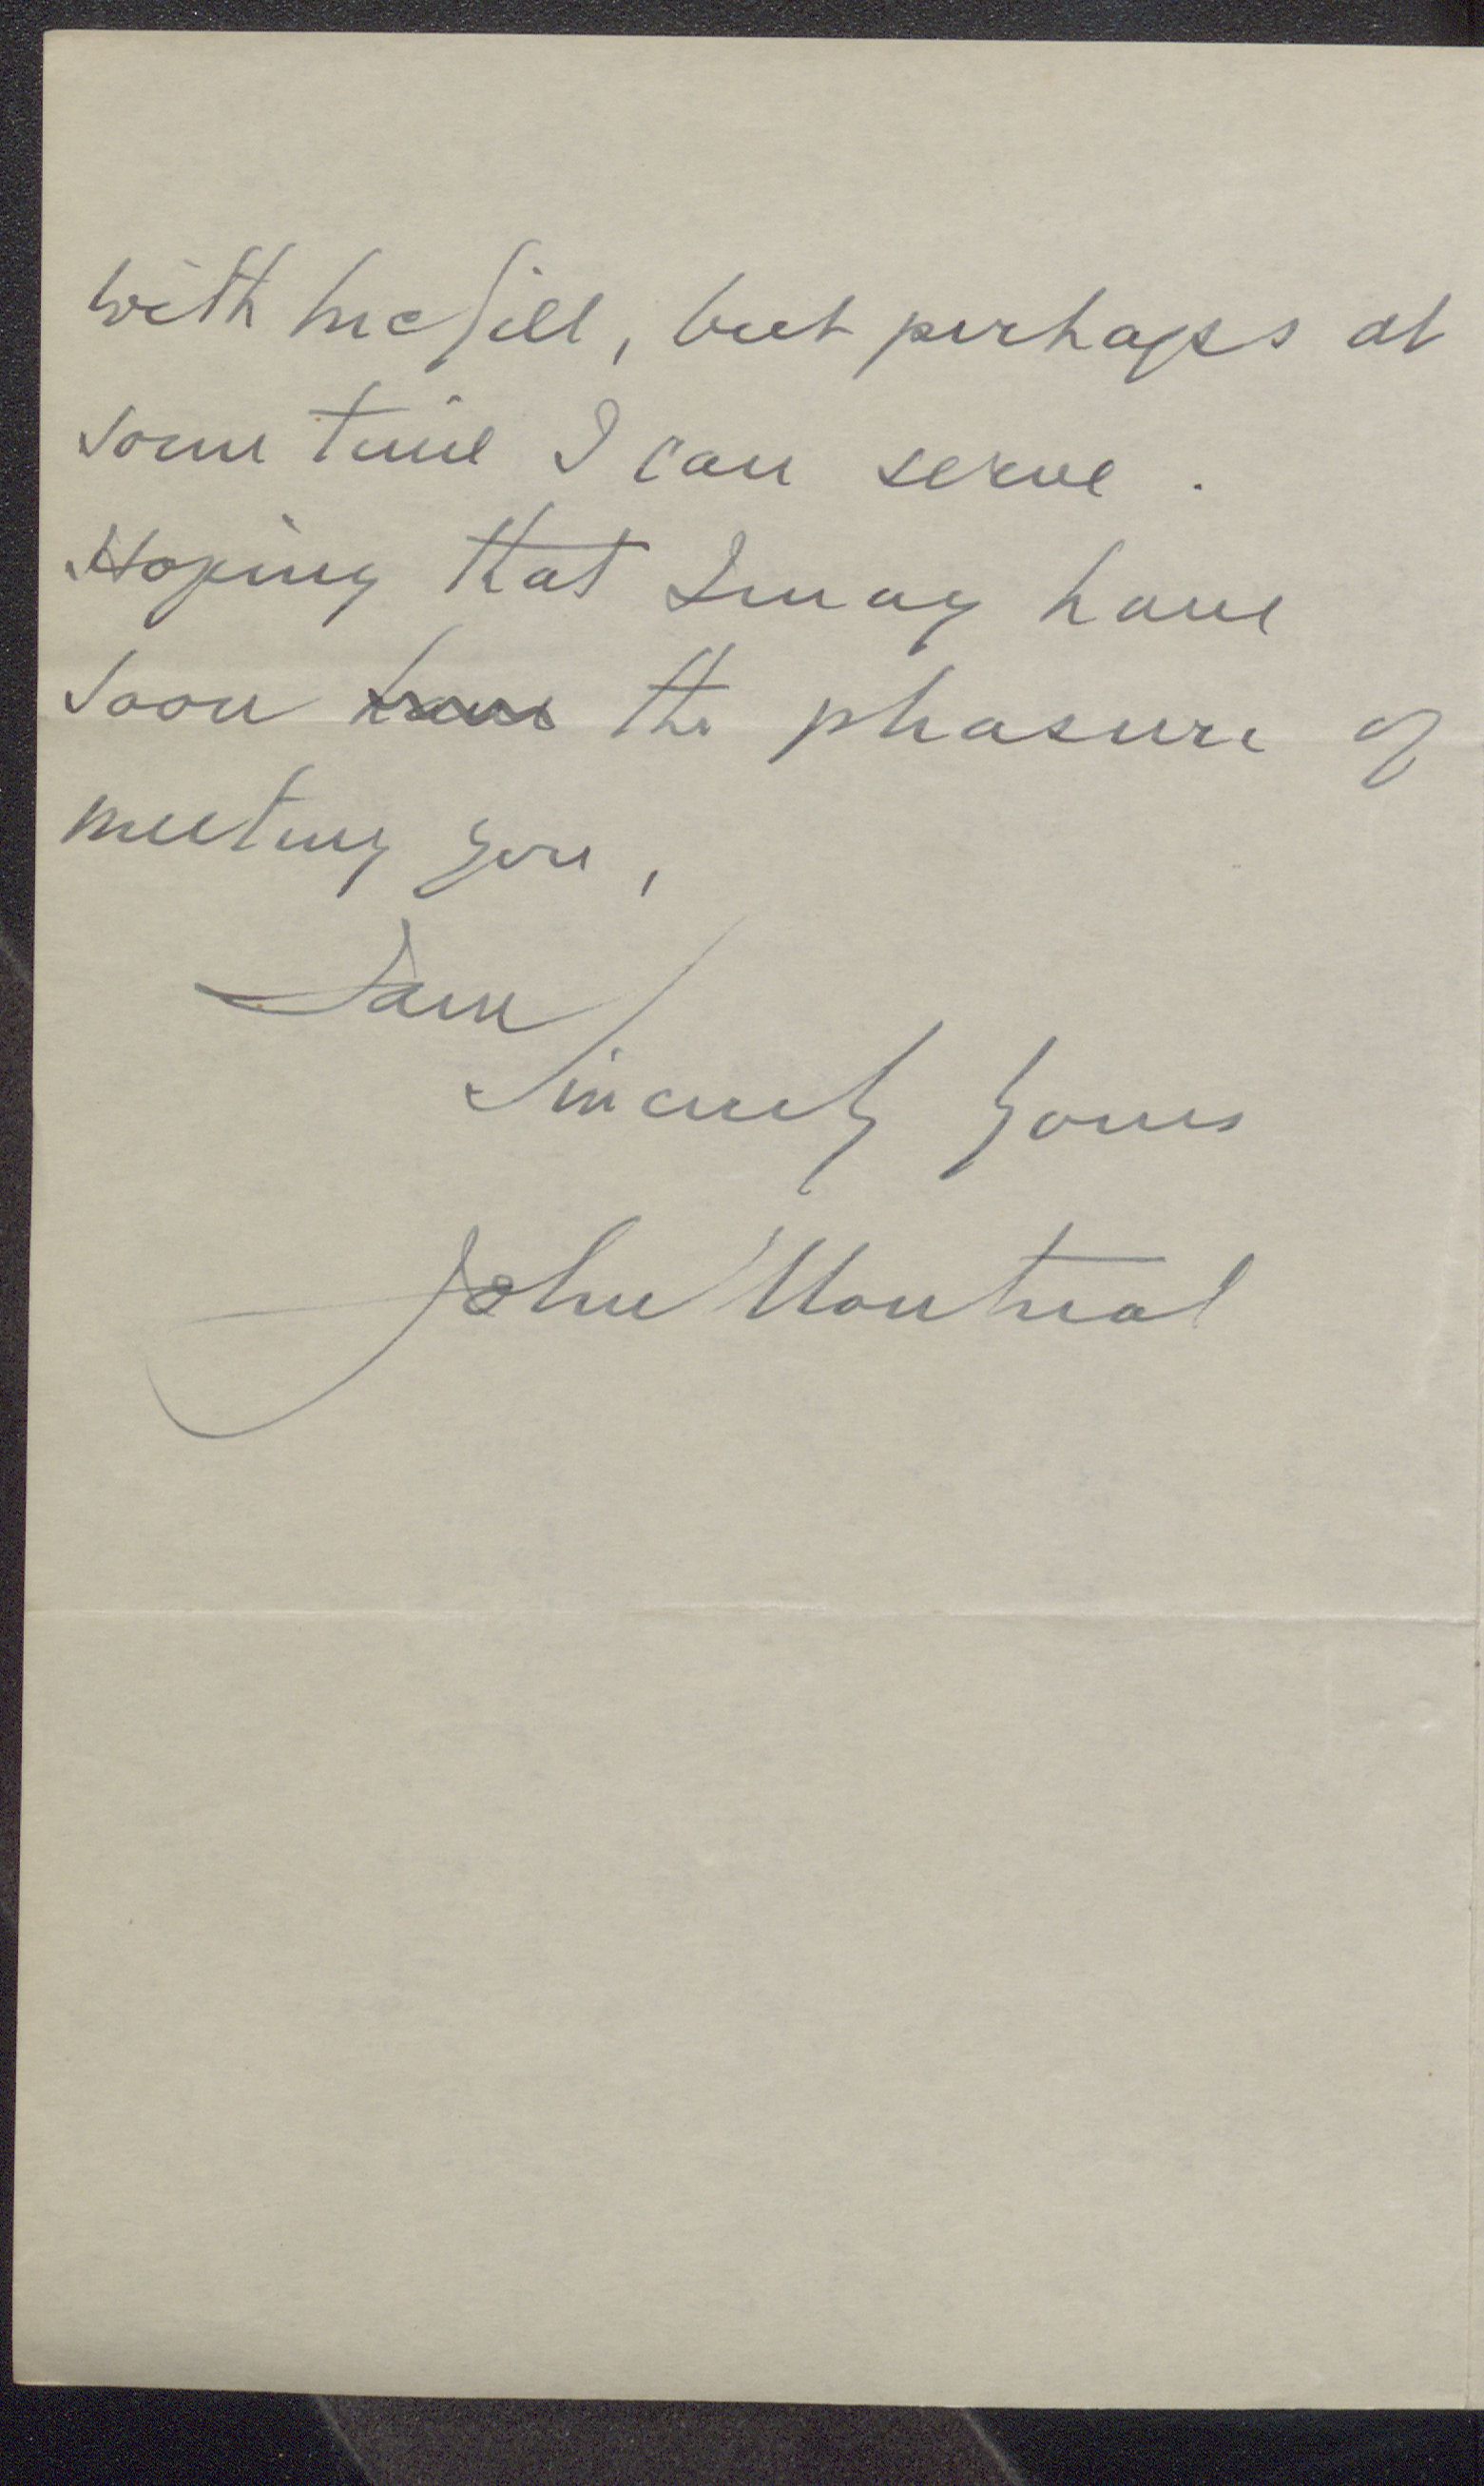 with McGill, but perhaps at
some time I can serve.
Hoping that I may have
soon have the pleasure of
meeting you,
I am
Sincerely yours
John Montreal